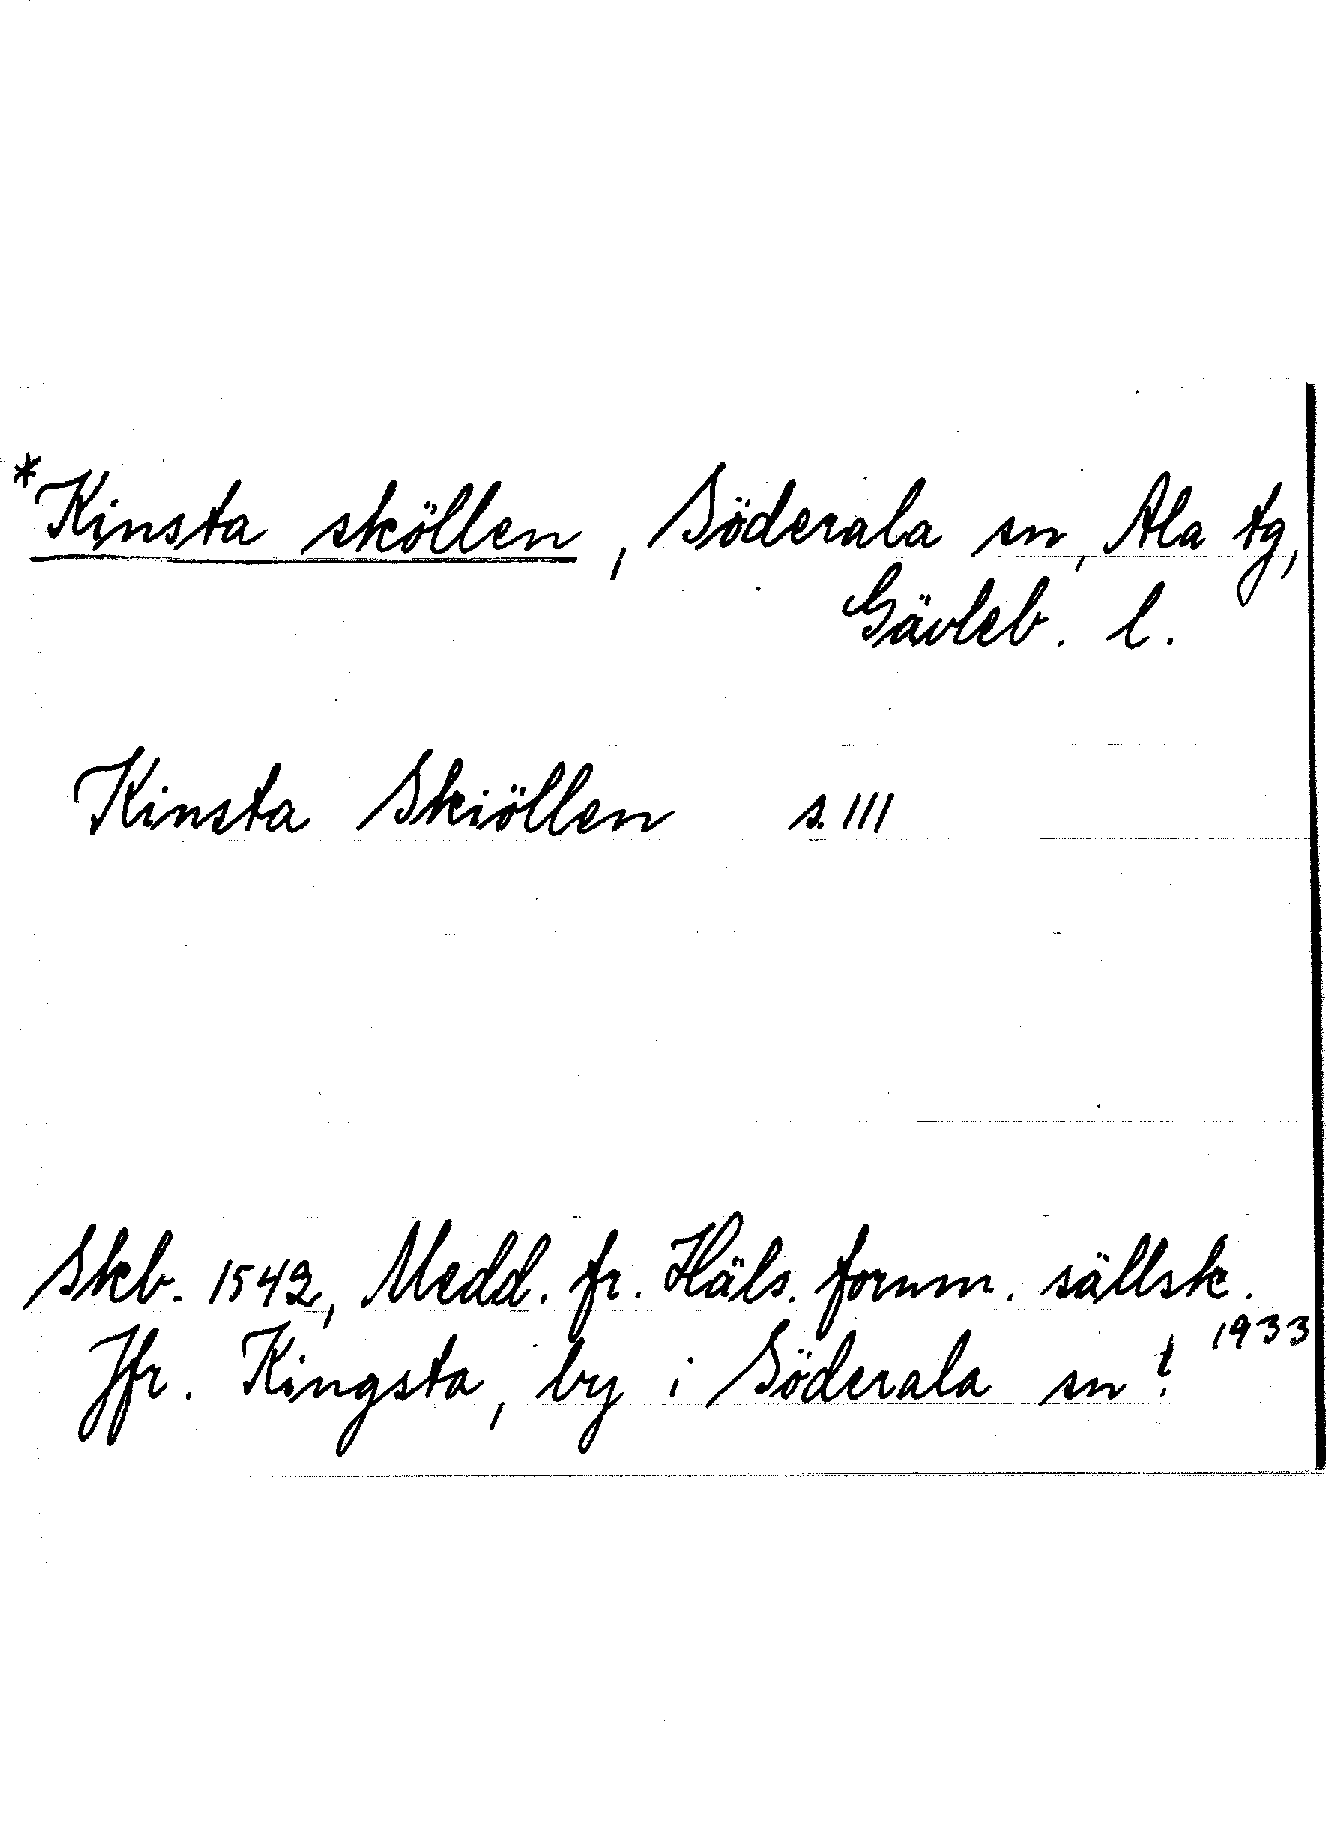 *Kinsta sköllen, Söderala sn, Ala tg,
Gävleb. l.
Kinsta Skiöllen s. 111
Skb. 1542, Medd. fr. Häls. fornm. sällsk.
1933
Jfr. Kingsta, by i Söderala sn!